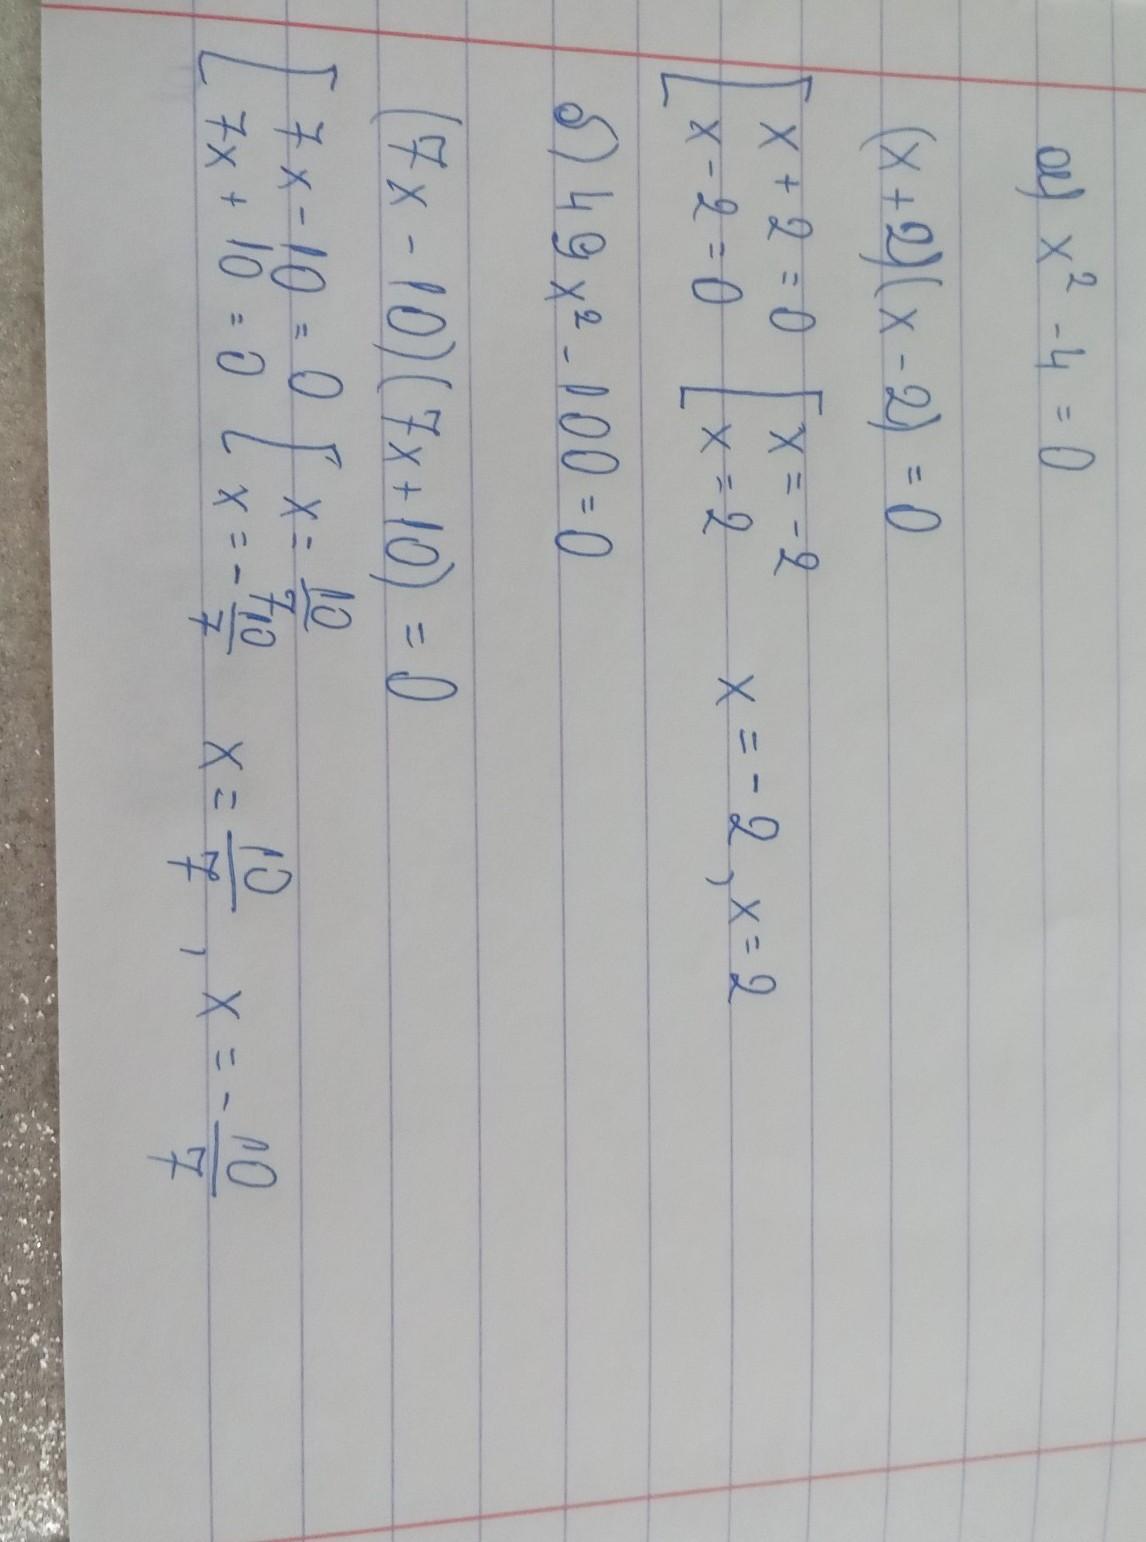 а) x² - 4 = 0
(x+2)(x-2) = 0
[ x+2=0 [ x=-2
[ x-2=0 [ x=2 x=-2, x=2
б) 49x² - 100 = 0
(7x-10)(7x+10) = 0
[ 7x-10=0 [ x=10/7
[ 7x+10=0 [ x=-10/7 x=10/7, x=-10/7